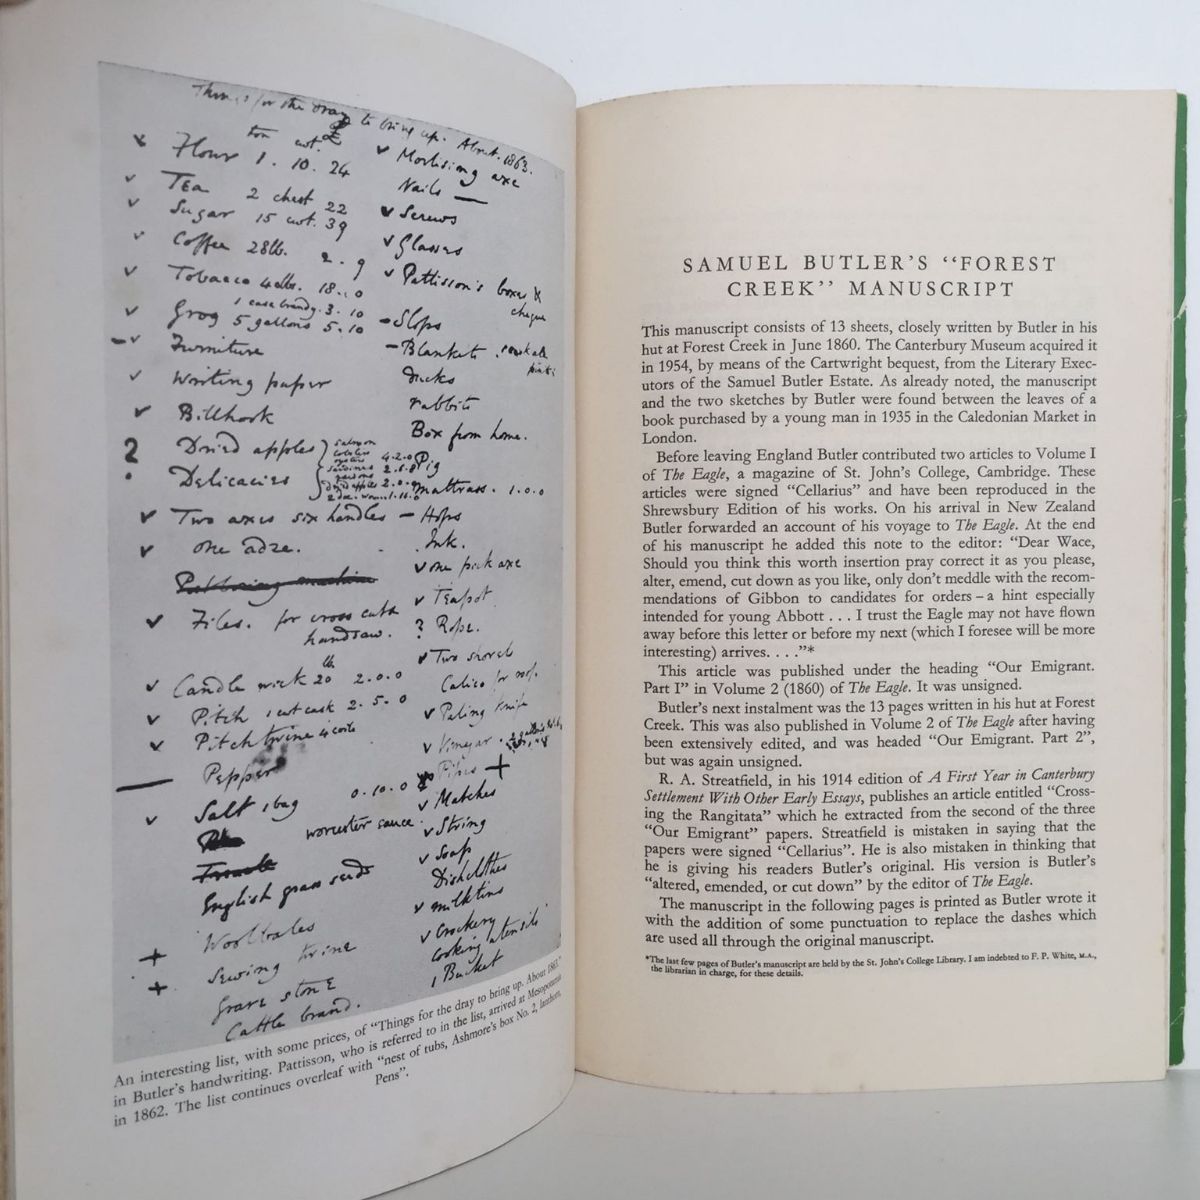 Things for the dray to bring up. About 1863.
ton cwt. £
✓ Flour 1 . 10 . 24
✓ Tea 2 chest 22
✓ Sugar 15 cwt. 39
✓ Coffee 28lb. 2 . 9
✓ Tobacco 18 . 0
✓ Grog 1 case brandy . 3 . 10
5 gallons 5 . 10
– ✓ Furniture
✓ Writing paper
✓ Billhook
? Dried apples
Delicacies
salmon
lobsters
oysters 4 . 2 . 0
sardines 2 . 6 . 8
dried apples 2 . 0 . 0
✓ Two axes six handles
✓ one adze.
✓ Files. for cross cut &
handsaw.
✓ Candle wick 20 lb 2 . 0 . 0
✓ Pitch 1 cwt cask 2 . 5 . 0
✓ Pitch twine
— Pepper
✓ Salt 1 bag 0 . 10 . 0
worcester sauce
English grass seeds
Woolbales
+ Sewing twine
+ Grave stone
Cattle brand.
✓ Mortising axe
Nails —
✓ Screws
✓ Glasses
✓ Pattison's boxes &
cheque
– Slops
– Blankets
Ducks
rabbits
Box from home.
Pig
mattrass . 1 . 0 . 0
– Hops
. Ink.
✓ one pick axe
✓ Teapot
? Rope.
✓ Two shovels
Calico for roof.
✓ Paling Knife
✓ Vinegar .
Pipes +
✓ Matches
✓ String
✓ Soap
Dishclothes
✓ milktins
✓ Crockery
cooking utensils
, Bucket
An interesting list, with some prices, of "Things for the dray to bring up. About 1863."
in Butler's handwriting. Pattisson, who is referred to in the list, arrived at Mesopotamia
in 1862. The list continues overleaf with "nest of tubs, Ashmore's box No. 2, lanthorn,
Pens".
SAMUEL BUTLER'S "FOREST
CREEK" MANUSCRIPT
This manuscript consists of 13 sheets, closely written by Butler in his
hut at Forest Creek in June 1860. The Canterbury Museum acquired it
in 1954, by means of the Cartwright bequest, from the Literary Exec-
utors of the Samuel Butler Estate. As already noted, the manuscript
and the two sketches by Butler were found between the leaves of a
book purchased by a young man in 1935 in the Caledonian Market in
London.
Before leaving England Butler contributed two articles to Volume I
of The Eagle, a magazine of St. John's College, Cambridge. These
articles were signed "Cellarius" and have been reproduced in the
Shrewsbury Edition of his works. On his arrival in New Zealand
Butler forwarded an account of his voyage to The Eagle. At the end
of his manuscript he added this note to the editor: "Dear Wace,
Should you think this worth insertion pray correct it as you please,
alter, emend, cut down as you like, only don't meddle with the recom-
mendations of Gibbon to candidates for orders – a hint especially
intended for young Abbott . . . I trust the Eagle may not have flown
away before this letter or before my next (which I foresee will be more
interesting) arrives. . . ."*
This article was published under the heading "Our Emigrant.
Part I" in Volume 2 (1860) of The Eagle. It was unsigned.
Butler's next instalment was the 13 pages written in his hut at Forest
Creek. This was also published in Volume 2 of The Eagle after having
been extensively edited, and was headed "Our Emigrant. Part 2",
but was again unsigned.
R. A. Streatfield, in his 1914 edition of A First Year in Canterbury
Settlement With Other Early Essays, publishes an article entitled "Cross-
ing the Rangitata" which he extracted from the second of the three
"Our Emigrant" papers. Streatfield is mistaken in saying that the
papers were signed "Cellarius". He is also mistaken in thinking that
he is giving his readers Butler's original. His version is Butler's
"altered, emended, or cut down" by the editor of The Eagle.
The manuscript in the following pages is printed as Butler wrote it
with the addition of some punctuation to replace the dashes which
are used all through the original manuscript.
*The last few pages of Butler's manuscript are held by the St. John's College Library. I am indebted to F. P. White, M.A.,
the librarian in charge, for these details.